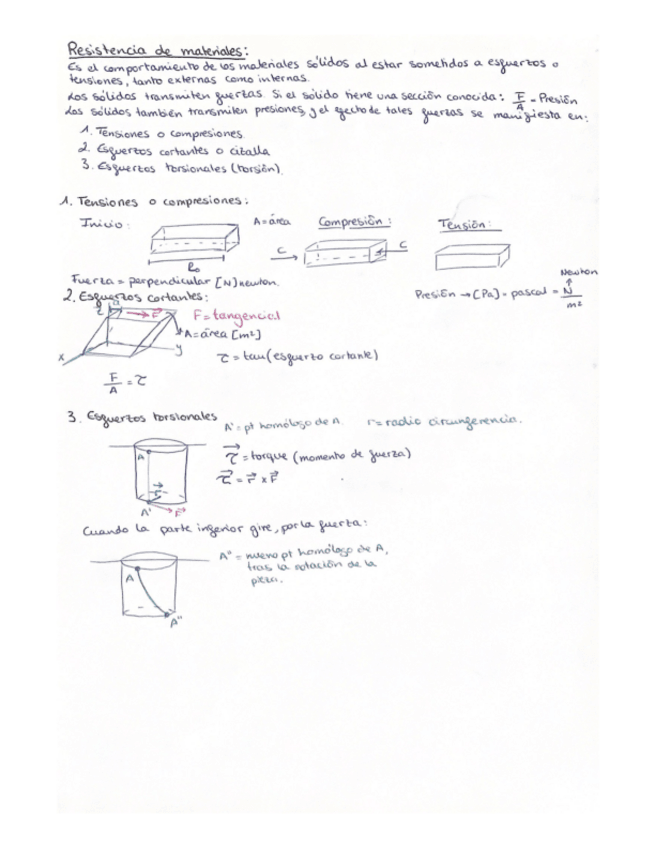 Resistencia de materiales:
Es el comportamiento de los materiales sólidos al estar sometidos a esfuerzos o
tensiones, tanto externas como internas.
Los sólidos transmiten fuerzas. Si el sólido tiene una sección conocida: F/A = Presión
Los sólidos también transmiten presiones, y el efecto de tales fuerzas se manifiesta en:
1. Tensiones o compresiones
2. Esfuerzos cortantes o cizalla
3. Esfuerzos torsionales (torsión).
1. Tensiones o compresiones:
Inicio: A = área Compresión: Tensión:
C C
l₀
Fuerza = perpendicular [N] newton.
Presión → [Pa] = pascal = N/m²
Newton
2. Esfuerzos cortantes:
F = tangencial
A = área [m²]
x y
τ = tau (esfuerzo cortante)
F/A = τ
3. Esfuerzos torsionales
A' = pt homólogo de A. r = radio circunferencia.
A
τ⃗ = torque (momento de fuerza)
τ⃗ = r⃗ x F⃗
A' F⃗
Cuando la parte inferior gire, por la fuerza:
A'' = nuevo pt homólogo de A,
tras la rotación de la
pieza.
A
A''